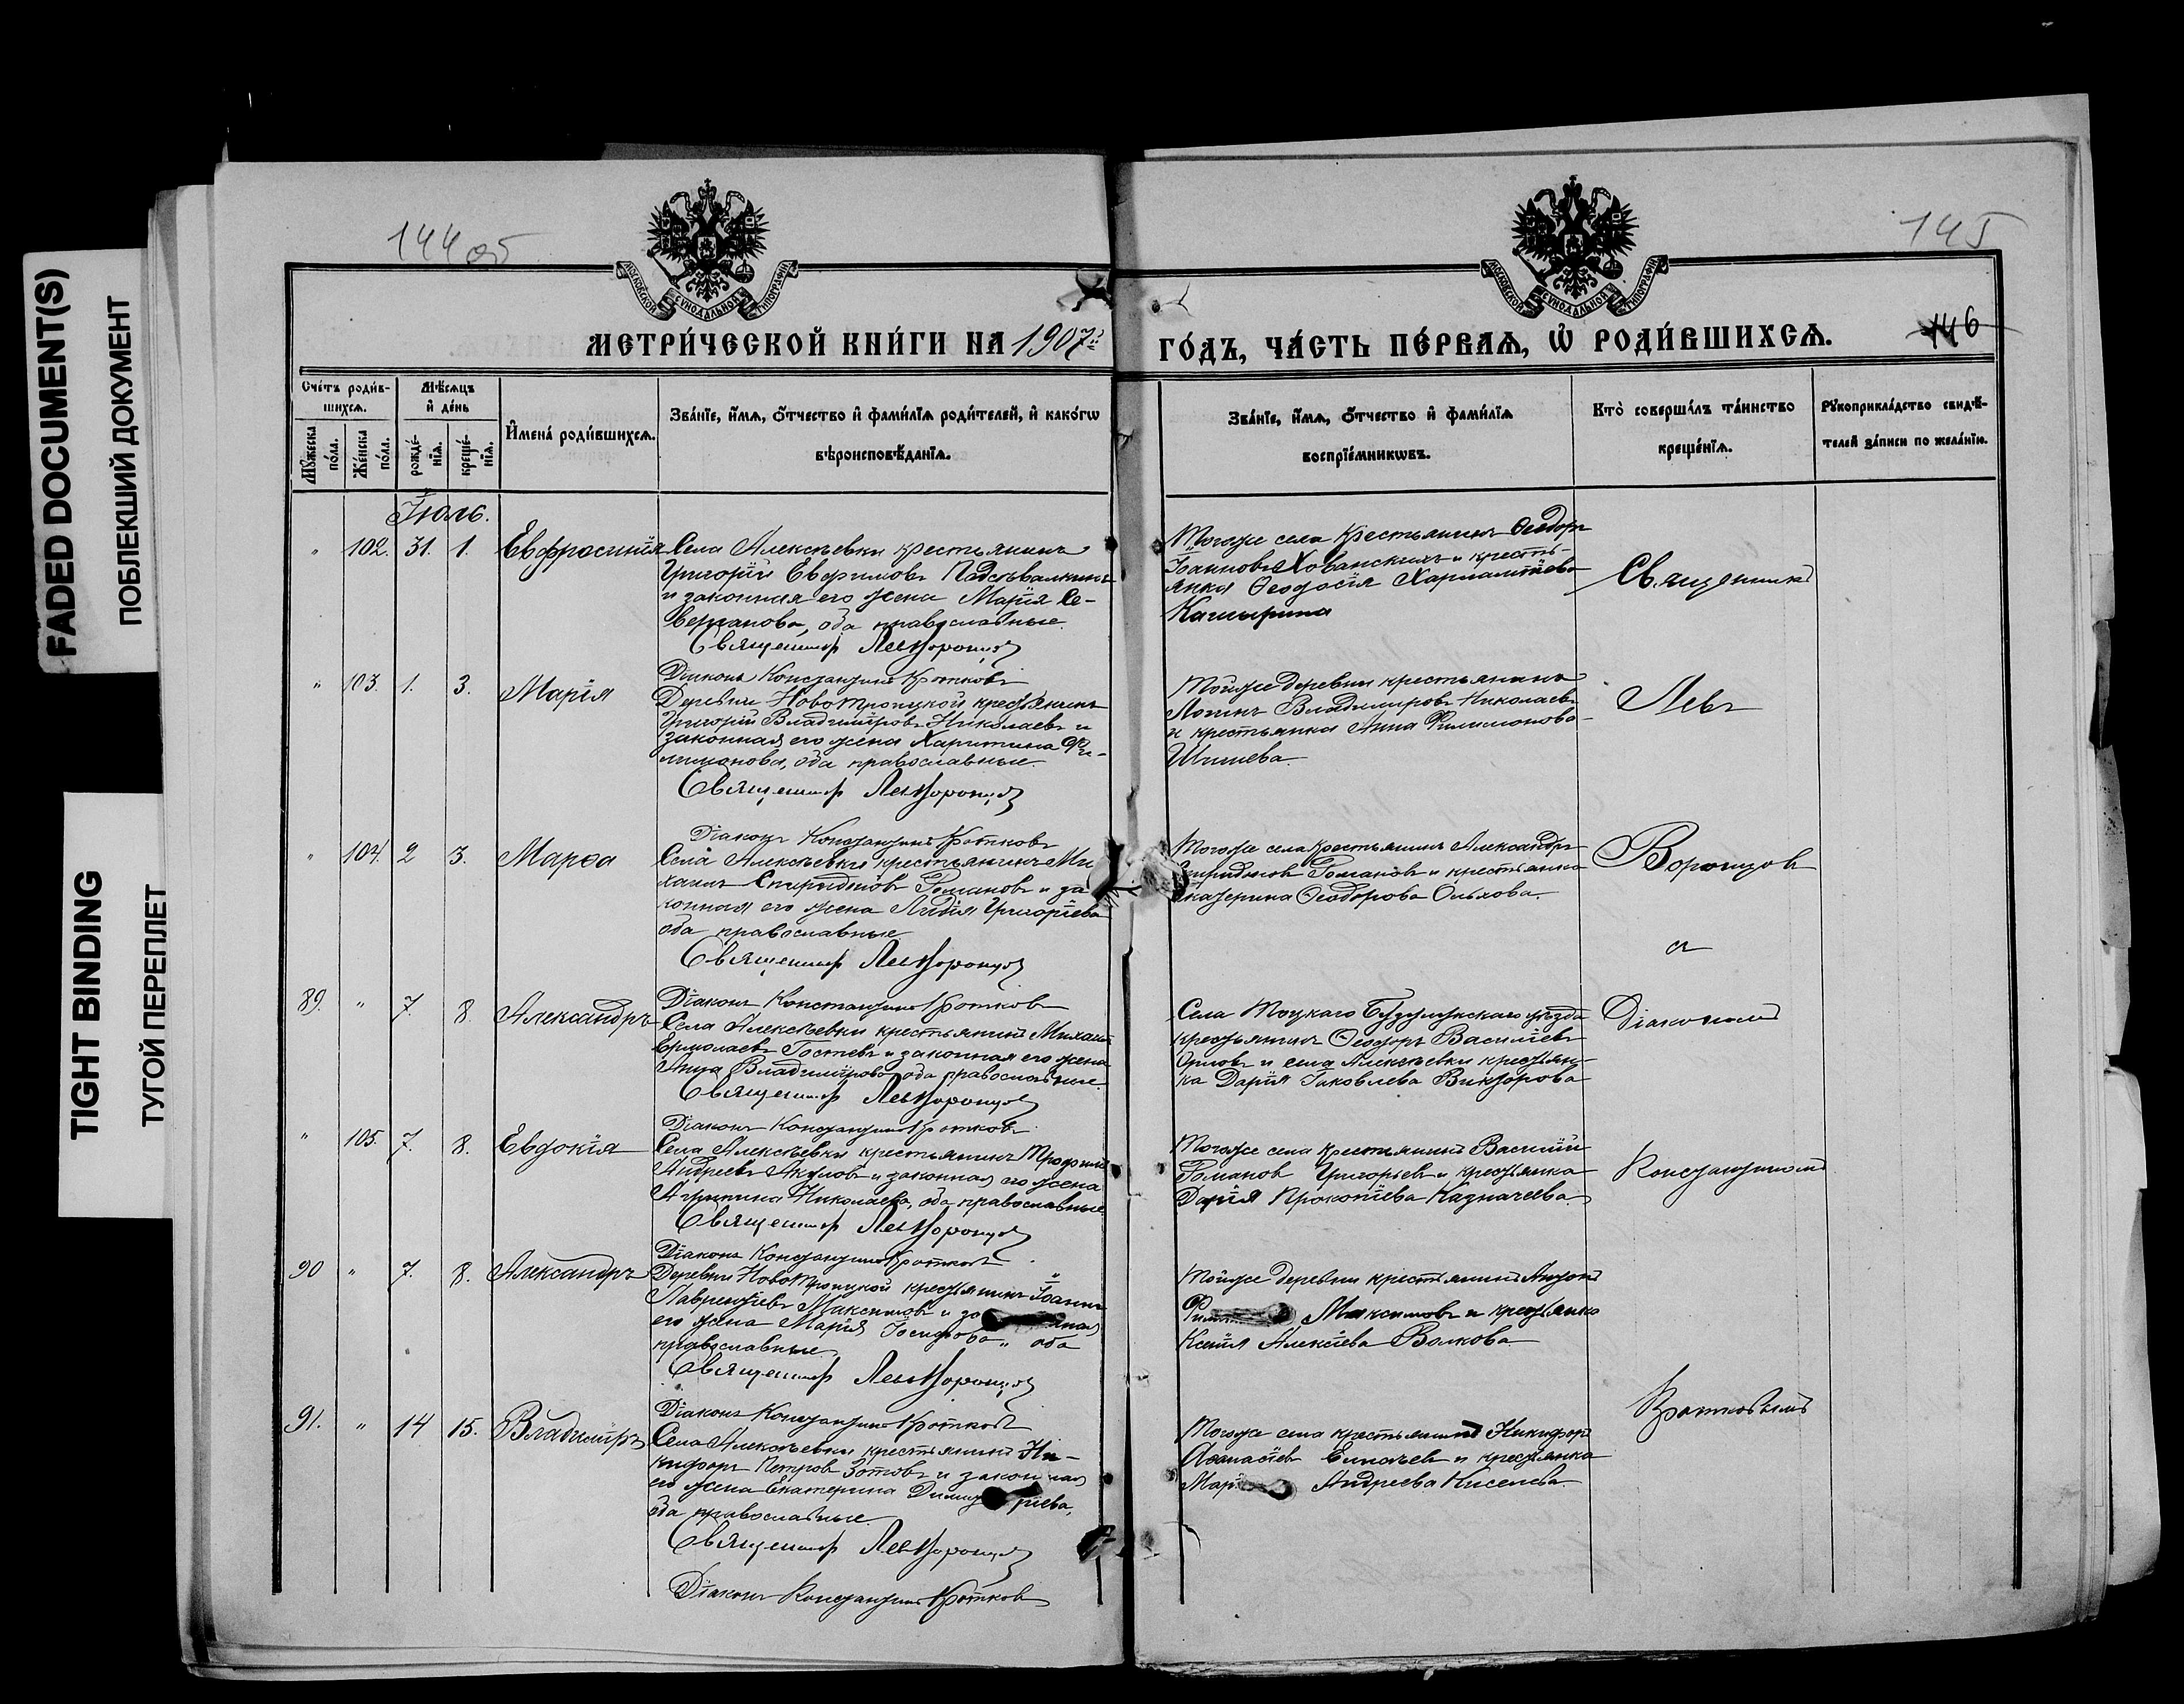 FADED DOCUMENT(S)
ПОБЛЕКШИЙ ДОКУМЕНТ
TIGHT BINDING
ТУГОЙ ПЕРЕПЛЕТ
144 об
145
146
МОСКОВСКОЙ СѴНОДАЛЬНОЙ ТИПОГРАФІИ
МОСКОВСКОЙ СѴНОДАЛЬНОЙ ТИПОГРАФІИ
МЕТРИ́ЧЕСКОЙ КНИ́ГИ НА 1907й
ГО́ДЪ, ЧА́СТЬ ПЕ́РВАѦ, Ѡ҆ РОДИ́ВШИХСѦ.
Сче́тъ роди́в-
шихсѧ.
Мꙋ́жеска
по́ла.
Же́нска
по́ла.
Мѣ́сѧцъ
и҆ де́нь
рожде́-
нїѧ.
креще́-
нїѧ.
И҆мена̀ роди́вшихсѧ.
Зва́нїе, и҆́мѧ, ѻ҆́тчество и҆ фами́лїѧ роди́телей, и҆ како́гѡ
вѣроисповѣ́данїѧ.
Зва́нїе, и҆́мѧ, ѻ҆́тчество и҆ фами́лїѧ
воспрїе́мникѡвъ.
Кто̀ соверша́лъ та́инство
креще́нїѧ.
Рꙋкоприкла́дство свидѣ́-
телей за́писи по жела́нїю.
Іюль.
" 102. 31. 1. Евфросинія
Села Алексѣевки крестьянинъ
Григорій Евфимовъ
и законная его жена Марія Се-
верианова, оба православные.
Священникъ Левъ Воронцов
Тогоже села крестьянинъ Ѳеодоръ
Іоанновъ Хованскихъ и кресть-
янка Ѳеодосія Харлампіева
Кашырина
Священникъ
Діаконъ Константинъ Кротковъ
" 103. 1. 3. Марія
Деревни Новотроицкой крестьянинъ
Григорій Владиміровъ Николаевъ и
законная его жена Харитина Фи-
лимонова, оба православные.
Священникъ Левъ Воронцов
Тойже деревни крестьянинъ
Логинъ Владиміровъ Николаевъ
и крестьянка Анна Филимонова
Левъ
Діаконъ Константинъ Кротковъ
" 104. 2 3. Марѳа
Села Алексѣевки крестьянинъ Ми-
хаилъ Спиридоновъ Романовъ и за-
конная его жена Лидія Григоріева
оба православные
Священникъ Левъ Воронцов
Тогоже села крестьянинъ Александръ
Спиридонов Романов и крестьянка
Екатерина Ѳеодорова Ольхова.
Воронцов
с
Діаконъ Константинъ Кротковъ
89. " 7. 8. Александръ
Села Алексѣевки крестьянинъ Михаилъ
Ермолаевъ Гостевъ и законная его жена
Анна Владимірова оба православные.
Священникъ Левъ Воронцов
Села Тоцкаго Бузулукскаго уѣзда
крестьянинъ Ѳеодоръ Василіевъ
Орловъ и села Алексѣевки крестьян-
ка Дарія Іаковлева Викторова
Діакономъ
Діаконъ Константинъ Кротковъ
" 105. 7. 8. Евдокія
Села Алексѣевки крестьянинъ Трофимъ
Андреевъ Акуловъ и законная его жена
Агрипина Николаева, оба православные
Священникъ Левъ Воронцов
Тогоже села крестьянинъ Василій
Романов Григорьев и крестьянка
Дарія Прокопіева Казначеева
Константиномъ
Діаконъ Константинъ Кротковъ
90 " 7. 8. Александръ
Деревни Новотроицкой крестьянинъ Іоаннъ
Лаврентіевъ Максимовъ и законная
его жена Марія Іосифова " оба
православные.
Священникъ Левъ Воронцов
Тойже деревни крестьянинъ Антонъ
Максимовъ и крестьянка
Ксенія Алексіева Волкова
Кротковымъ
Діаконъ Константинъ Кротковъ
91. " 14 15. Владиміръ
Села Алексѣевки крестьянинъ Ни-
кифоръ Петров Зотовъ и законная
его жена Екатерина Димитріева,
оба православные.
Священникъ Левъ Воронцов
Тогоже села крестьянинъ Никифоръ
Аѳанасіев и крестьянка
Марія Андреева Киселева
Діаконъ Константинъ Кротков